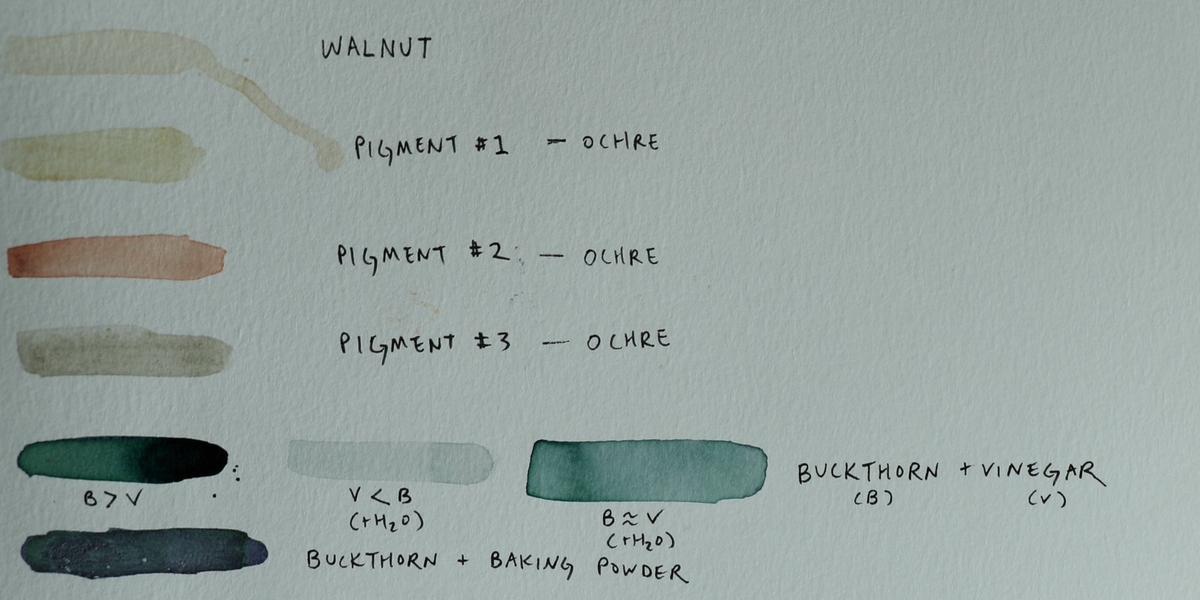 WALNUT
PIGMENT #1 — OCHRE
PIGMENT #2 — OCHRE
PIGMENT #3 — OCHRE
BUCKTHORN + VINEGAR
(B) (V)
B > V
V < B
(+H2O)
B ≈ V
(+H2O)
BUCKTHORN + BAKING POWDER